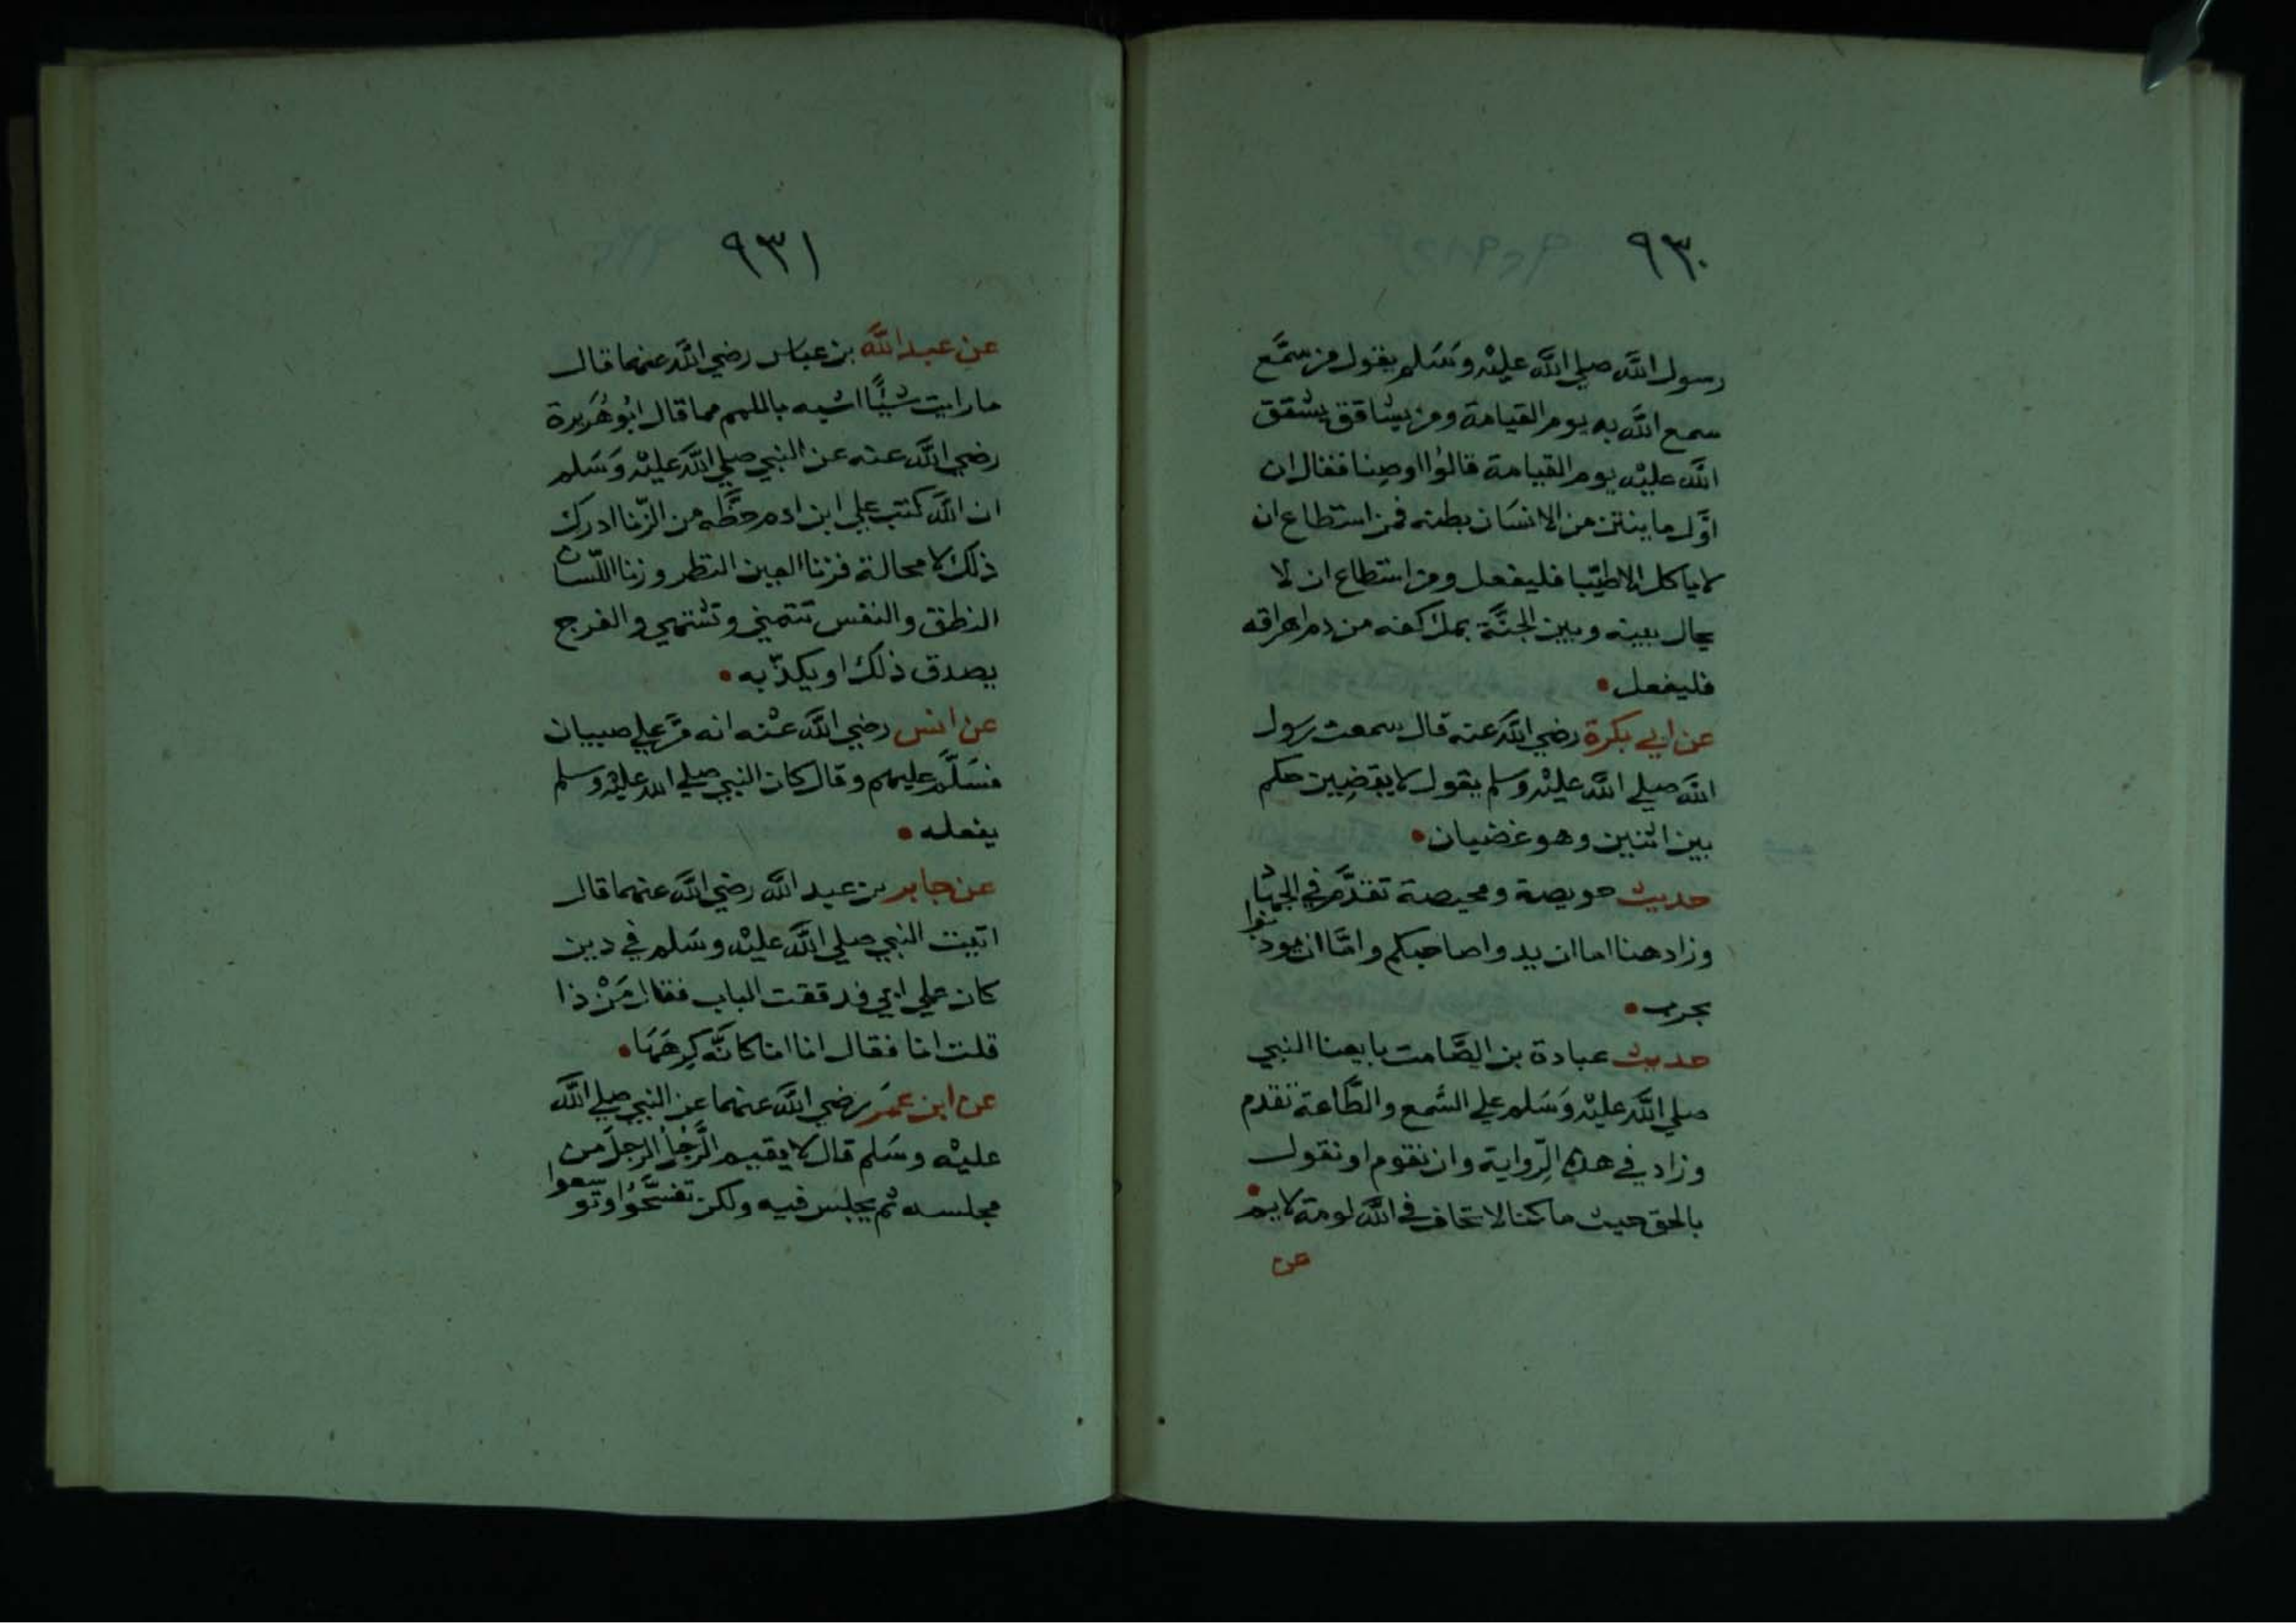 ٩٣٠
رسول الله صلي الله عليْه وَسَلم يقول من سمَّع
سمع الله به يوم القيامة ومن يشاقق يشقق
الله عليْه يوم القيامة قالوُا اوصِنا فقال ان
اوَّل ما ينتن من الانسَان بطنه فمن استطاع ان
لا ياكل الا طيّبا فليفعل ومن استطاع ان لا
يحال بينه وبين الجنَّة بملٔ كفه من دم اهراقه
فليفعل
عن ابي بكرة رضي الله عنه قال سمعت رسول
الله صلي الله عليْه وسلم يقول لا يقضِيين حكم
بين اثنين وهو غضبان
حديث حويصة ومحيصة تقدَّم في الجهاد
وزاد هنا اما ان يدوا صاحبكم وامَّا ان يوذنوا
بحرب
حديث عبادة بن الصَّامت بايعنا النبي
صلي الله عليْه وَسَلم علي السَّمع والطَّاعة تقدم
وزاد في هذه الرِّواية وان نقوم او نقول
بالحق حيث ما كنا لا نخاف في الله لومة لايم
عن
٩٣١
عن عبد الله بن عباس رضي الله عنهما قال
ما رايت شئًا اشبه باللمم مما قال ابُو هُريرة
رضي الله عنه عن النبي صلي الله عليْه وَسَلم
ان الله كتب علي ابن ادم حظَّه من الزّنا ادرك
ذلك لا محالة فزنا العين النظر وزنا اللّسان
النطق والنفس تتمني وتشتهي والفرج
يصدق ذلك او يكذّبه
عن انس رضي الله عنْه انه مَرَّ علي صبيان
فسَلَّم عليهم وقال كان النبي صلي الله عليْه وسلم
يفعله
عن جابر بن عبد الله رضي الله عنهما قال
اتيت النبي صلي الله عليْه وسَلم في دين
كان علي ابي فدققت الباب فقال مَنْ ذا
قلت انا فقال انا انا كانَّه كرِهَهَا
عن ابن عمَر رضي الله عنهما عن النبي صلي الله
عليْه وسَلم قال لا يقيم الرَّجُل الرجلَ من
مجلسه ثم يجلس فيه ولكن تفسَّحُوا وتوسعوا